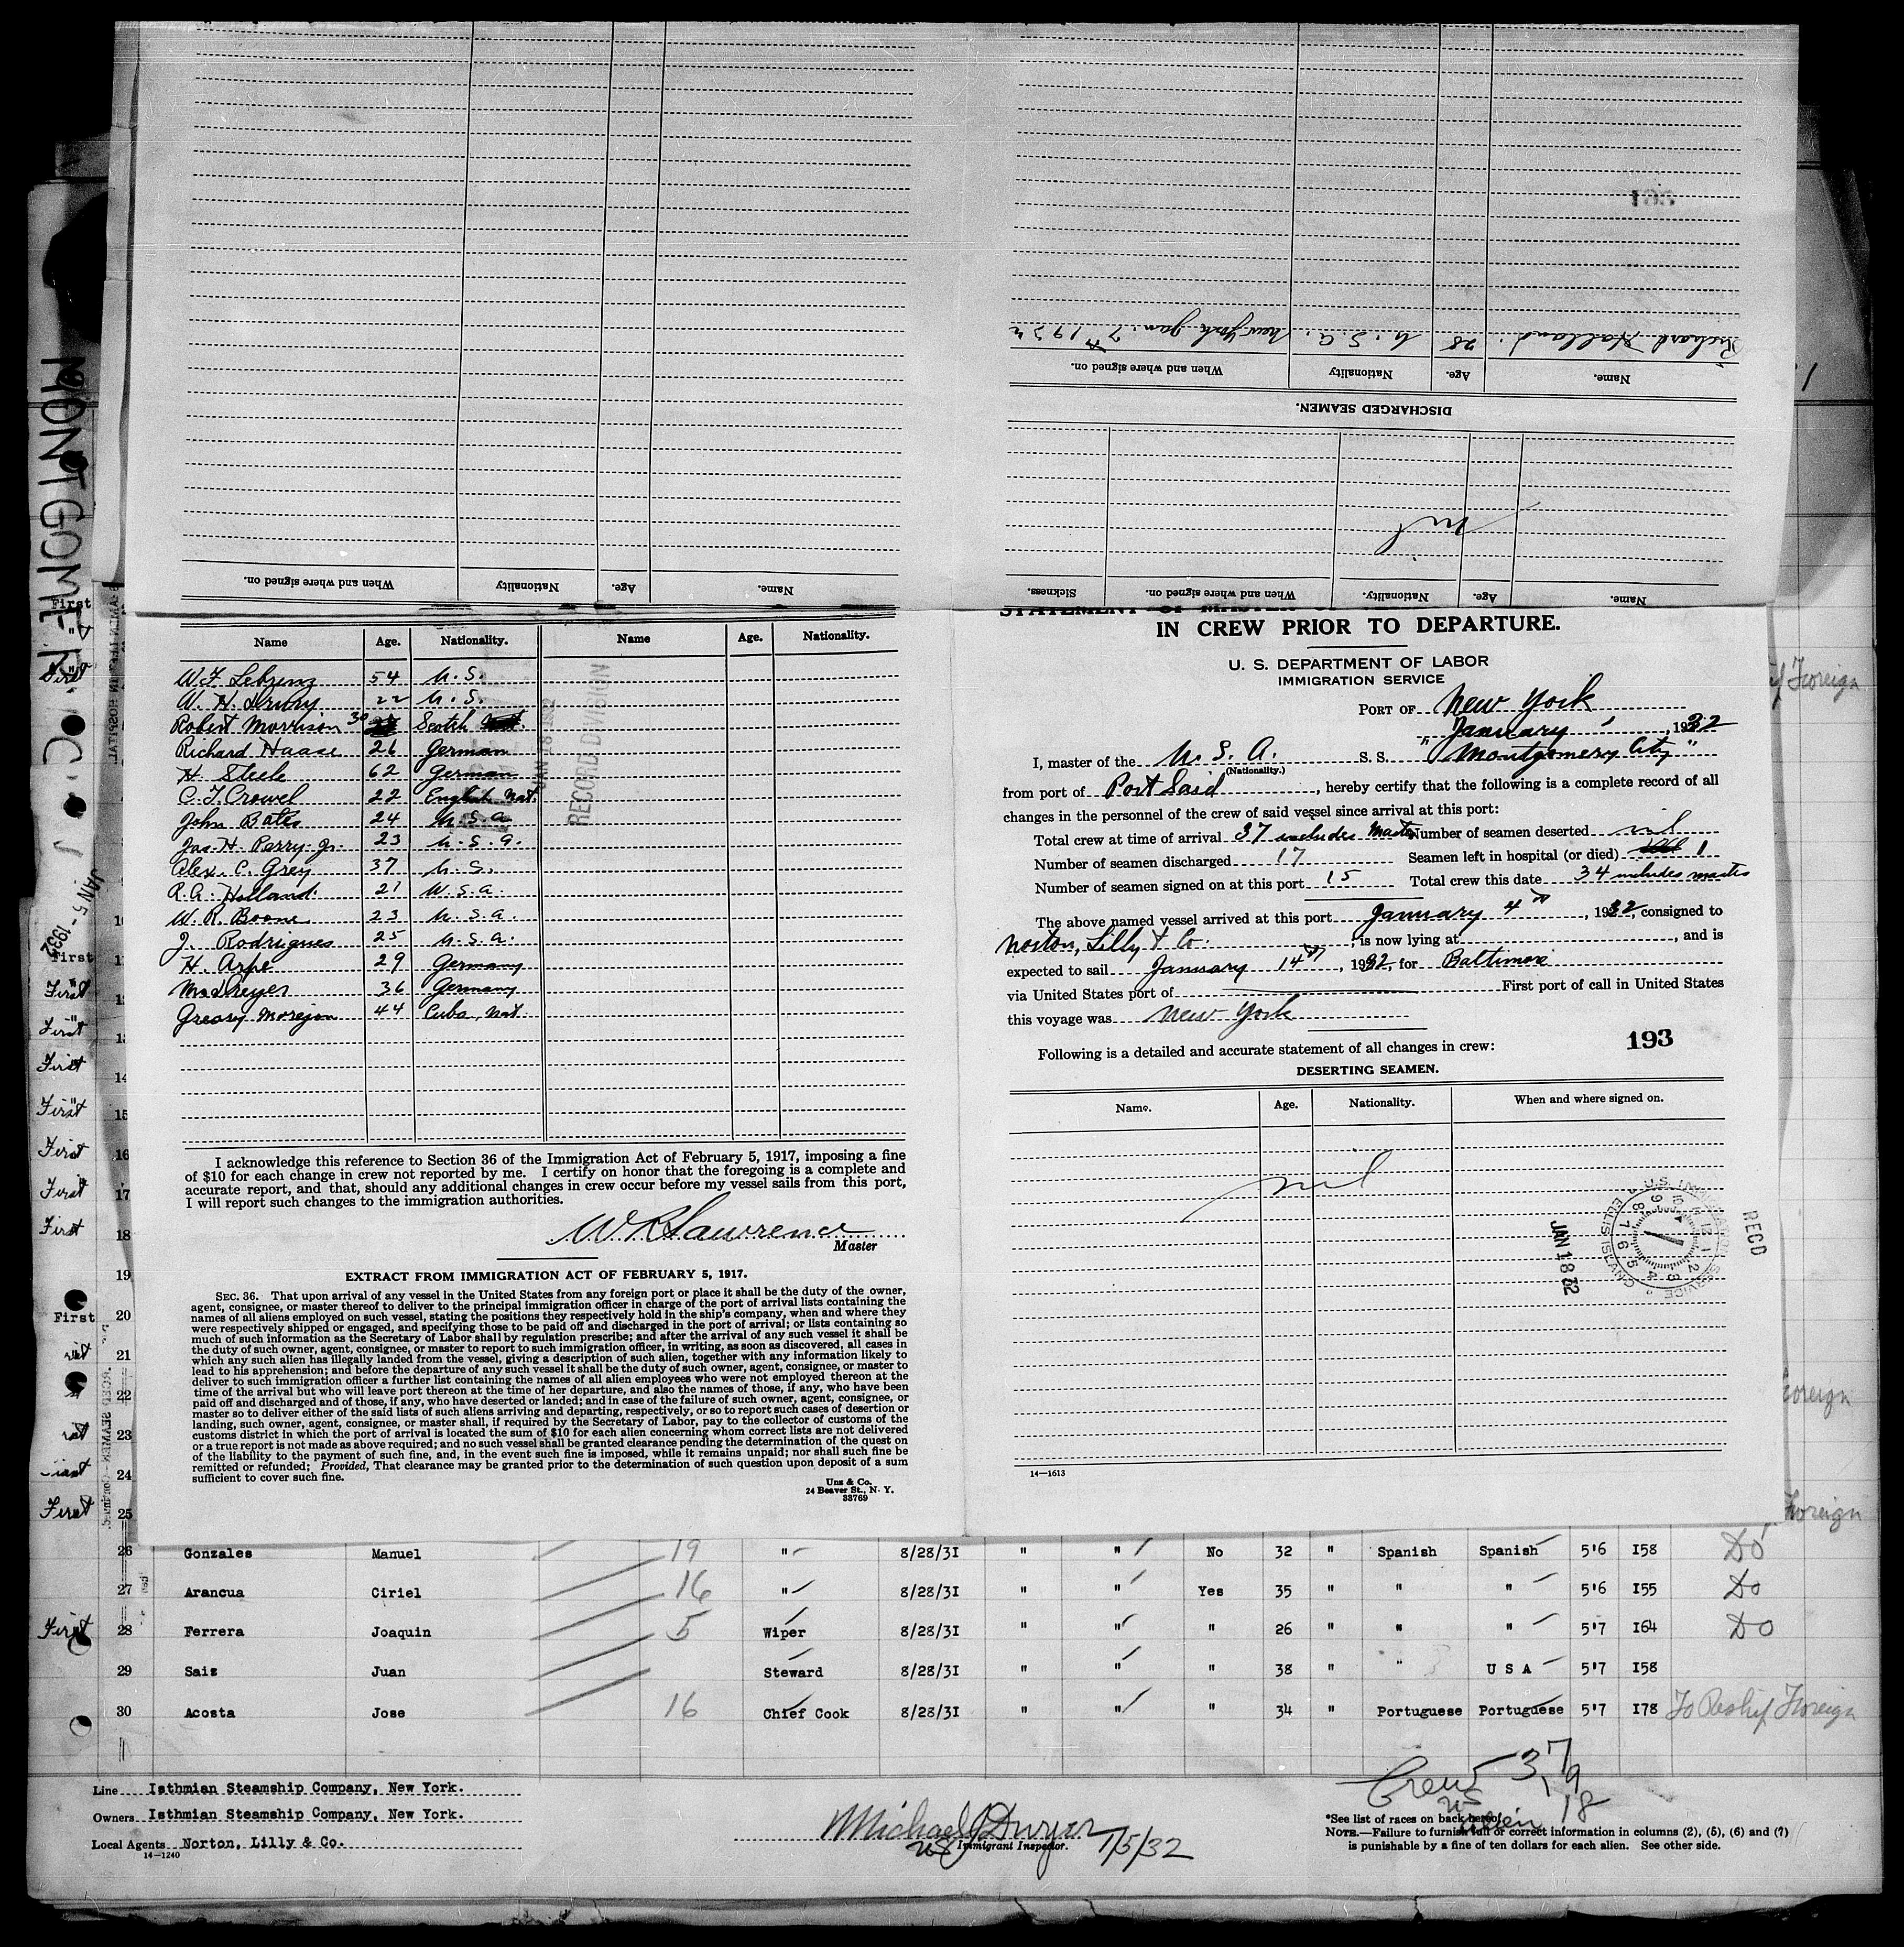 193
Richard Holland. 28 U.S.A. New York Jan. 7th 1932
Name. Age. Nationality When and where signed on.
DISCHARGED SEAMEN.
nil
Name. Age. Nationality. When and where signed on. Sickness.
Name. Age. Nationality When and where signed on.
MONTGOMERY C
JAN 5 - 1932
Name Age. Nationality. Name Age. Nationality.
W. F. Lebrenz 54 U.S.
W. H. Drury 22 U.S.
Robert Morrison 30 Scotch
Richard Haase 26 German
H. Steele 62 German
C. J. Crowel 22 English Nat.
John Bates 24 U.S.a
Jas. H. Perry Jr. 23 U.S.a.
Alex. C. Grey 37 U.S.
R. A. Holland 21 U.S.a.
W. R. Boone 23 U.S.a.
J. Rodrigues 25 U.S.a.
H. Arpe 29 Germany
M. Dreyer 36 Germany
Greasy Morejon 44 Cuba, Nat.
JAN 18 1932
RECORD DIVISION
I acknowledge this reference to Section 36 of the Immigration Act of February 5, 1917, imposing a fine
of $10 for each change in crew not reported by me. I certify on honor that the foregoing is a complete and
accurate report, and that, should any additional changes in crew occur before my vessel sails from this port,
I will report such changes to the immigration authorities.
W R Lawrence
Master
EXTRACT FROM IMMIGRATION ACT OF FEBRUARY 5, 1917.
SEC. 36. That upon arrival of any vessel in the United States from any foreign port or place it shall be the duty of the owner,
agent, consignee, or master thereof to deliver to the principal immigration officer in charge of the port of arrival lists containing the
names of all aliens employed on such vessel, stating the positions they respectively hold in the ship's company, when and where they
were respectively shipped or engaged, and specifying those to be paid off and discharged in the port of arrival; or lists containing so
much of such information as the Secretary of Labor shall by regulation prescribe; and after the arrival of any such vessel it shall be
the duty of such owner, agent, consignee, or master to report to such immigration officer, in writing, as soon as discovered, all cases in
which any such alien has illegally landed from the vessel, giving a description of such alien, together with any information likely to
lead to his apprehension; and before the departure of any such vessel it shall be the duty of such owner, agent, consignee, or master to
deliver to such immigration officer a further list containing the names of all alien employees who were not employed thereon at the
time of the arrival but who will leave port thereon at the time of her departure, and also the names of those, if any, who have been
paid off and discharged and of those, if any, who have deserted or landed; and in case of the failure of such owner, agent, consignee, or
master so to deliver either of the said lists of such aliens arriving and departing, respectively, or so to report such cases of desertion or
landing, such owner, agent, consignee, or master shall, if required by the Secretary of Labor, pay to the collector of customs of the
customs district in which the port of arrival is located the sum of $10 for each alien concerning whom correct lists are not delivered
or a true report is not made as above required; and no such vessel shall be granted clearance pending the determination of the quest on
of the liability to the payment of such fine, and, in the event such fine is imposed, while it remains unpaid; nor shall such fine be
remitted or refunded; Provided, That clearance may be granted prior to the determination of such question upon deposit of a sum
sufficient to cover such fine.
Uns & Co.
24 Beaver St., N. Y.
33769
STATEMENT OF MASTER OF
IN CREW PRIOR TO DEPARTURE.
U. S. DEPARTMENT OF LABOR
IMMIGRATION SERVICE
PORT OF New York
January , 1932
I, master of the U. S. A. S. S. "Montgomery City"
(Nationality.)
from port of Port Said , hereby certify that the following is a complete record of all
changes in the personnel of the crew of said vessel since arrival at this port:
Total crew at time of arrival 37 includes Master Number of seamen deserted nil
Number of seamen discharged 17 Seamen left in hospital (or died) 1
Number of seamen signed on at this port 15 Total crew this date 34 includes master
The above named vessel arrived at this port January 4th , 1932, consigned to
Norton, Lilly & Co. , is now lying at , and is
expected to sail January 14th , 1932, for Baltimore
via United States port of First port of call in United States
this voyage was New York
Following is a detailed and accurate statement of all changes in crew: 193
DESERTING SEAMEN.
Name. Age. Nationality. When and where signed on.
nil
U.S. IMMIGRATION SERVICE ELLIS ISLAND
RECD
JAN 18 32
14—1613
26 Gonzales Manuel 19 " 8/28/31 " " No 32 " Spanish Spanish 5'6 158 Do
27 Arancua Ciriel 16 " 8/28/31 " " Yes 35 " " " 5'6 155 Do
First 28 Ferrera Joaquin 5 Wiper 8/28/31 " " " 26 " " " 5'7 164 Do
29 Saiz Juan Steward 8/28/31 " " " 38 " " U S A 5'7 158
30 Acosta Jose 16 Chief Cook 8/28/31 " " " 34 " Portuguese Portuguese 5'7 178 To Reship Foreign
Line Isthmian Steamship Company, New York.
Owners Isthmian Steamship Company, New York.
Local Agents Norton, Lilly & Co.
14—1240
Michael J Dwyer 1/5/32
Immigrant Inspector.
Crew 37
US 19
alien 18
*See list of races on back hereof.
NOTE.—Failure to furnish full or correct information in columns (2), (5), (6) and (7)
is punishable by a fine of ten dollars for each alien. See other side.